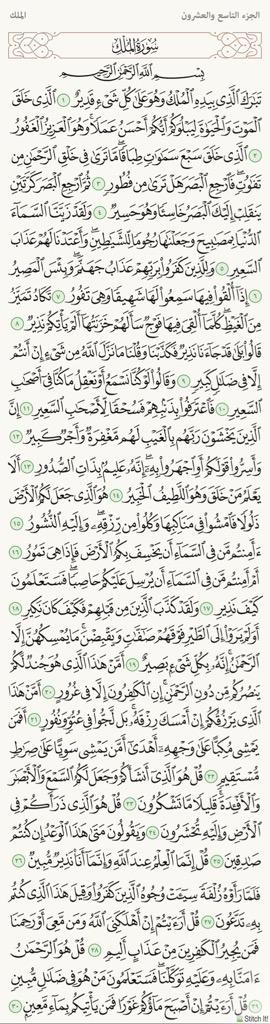 الجزء التاسع والعشرون
الملك
سُورَةُ المُلْكِ
بِسْمِ اللَّهِ الرَّحْمَٰنِ الرَّحِيمِ
تَبَٰرَكَ الَّذِي بِيَدِهِ الْمُلْكُ وَهُوَ عَلَىٰ كُلِّ شَيْءٍ قَدِيرٌ ١ الَّذِي خَلَقَ
الْمَوْتَ وَالْحَيَوٰةَ لِيَبْلُوَكُمْ أَيُّكُمْ أَحْسَنُ عَمَلًا وَهُوَ الْعَزِيزُ الْغَفُورُ
٢ الَّذِي خَلَقَ سَبْعَ سَمَٰوَٰتٍ طِبَاقًا مَّا تَرَىٰ فِي خَلْقِ الرَّحْمَٰنِ مِن
تَفَٰوُتٍ فَارْجِعِ الْبَصَرَ هَلْ تَرَىٰ مِن فُطُورٍ ٣ ثُمَّ ارْجِعِ الْبَصَرَ كَرَّتَيْنِ
يَنقَلِبْ إِلَيْكَ الْبَصَرُ خَاسِئًا وَهُوَ حَسِيرٌ ٤ وَلَقَدْ زَيَّنَّا السَّمَاءَ
الدُّنْيَا بِمَصَٰبِيحَ وَجَعَلْنَٰهَا رُجُومًا لِّلشَّيَٰطِينِ وَأَعْتَدْنَا لَهُمْ عَذَابَ
السَّعِيرِ ٥ وَلِلَّذِينَ كَفَرُوا بِرَبِّهِمْ عَذَابُ جَهَنَّمَ وَبِئْسَ الْمَصِيرُ
٦ إِذَا أُلْقُوا فِيهَا سَمِعُوا لَهَا شَهِيقًا وَهِيَ تَفُورُ ٧ تَكَادُ تَمَيَّزُ
مِنَ الْغَيْظِ كُلَّمَا أُلْقِيَ فِيهَا فَوْجٌ سَأَلَهُمْ خَزَنَتُهَا أَلَمْ يَأْتِكُمْ نَذِيرٌ ٨
قَالُوا بَلَىٰ قَدْ جَاءَنَا نَذِيرٌ فَكَذَّبْنَا وَقُلْنَا مَا نَزَّلَ اللَّهُ مِن شَيْءٍ إِنْ أَنتُمْ
إِلَّا فِي ضَلَٰلٍ كَبِيرٍ ٩ وَقَالُوا لَوْ كُنَّا نَسْمَعُ أَوْ نَعْقِلُ مَا كُنَّا فِي أَصْحَٰبِ
السَّعِيرِ ١٠ فَاعْتَرَفُوا بِذَنبِهِمْ فَسُحْقًا لِّأَصْحَٰبِ السَّعِيرِ ١١ إِنَّ
الَّذِينَ يَخْشَوْنَ رَبَّهُم بِالْغَيْبِ لَهُم مَّغْفِرَةٌ وَأَجْرٌ كَبِيرٌ ١٢
وَأَسِرُّوا قَوْلَكُمْ أَوِ اجْهَرُوا بِهِ إِنَّهُ عَلِيمٌ بِذَاتِ الصُّدُورِ ١٣ أَلَا
يَعْلَمُ مَنْ خَلَقَ وَهُوَ اللَّطِيفُ الْخَبِيرُ ١٤ هُوَ الَّذِي جَعَلَ لَكُمُ الْأَرْضَ
ذَلُولًا فَامْشُوا فِي مَنَاكِبِهَا وَكُلُوا مِن رِّزْقِهِ وَإِلَيْهِ النُّشُورُ ١٥
ءَأَمِنتُم مَّن فِي السَّمَاءِ أَن يَخْسِفَ بِكُمُ الْأَرْضَ فَإِذَا هِيَ تَمُورُ ١٦
أَمْ أَمِنتُم مَّن فِي السَّمَاءِ أَن يُرْسِلَ عَلَيْكُمْ حَاصِبًا فَسَتَعْلَمُونَ
كَيْفَ نَذِيرِ ١٧ وَلَقَدْ كَذَّبَ الَّذِينَ مِن قَبْلِهِمْ فَكَيْفَ كَانَ نَكِيرِ ١٨
أَوَلَمْ يَرَوْا إِلَى الطَّيْرِ فَوْقَهُمْ صَٰفَّٰتٍ وَيَقْبِضْنَ مَا يُمْسِكُهُنَّ إِلَّا
الرَّحْمَٰنُ إِنَّهُ بِكُلِّ شَيْءٍ بَصِيرٌ ١٩ أَمَّنْ هَٰذَا الَّذِي هُوَ جُندٌ لَّكُمْ
يَنصُرُكُم مِّن دُونِ الرَّحْمَٰنِ إِنِ الْكَٰفِرُونَ إِلَّا فِي غُرُورٍ ٢٠ أَمَّنْ هَٰذَا
الَّذِي يَرْزُقُكُمْ إِنْ أَمْسَكَ رِزْقَهُ بَل لَّجُّوا فِي عُتُوٍّ وَنُفُورٍ ٢١ أَفَمَن
يَمْشِي مُكِبًّا عَلَىٰ وَجْهِهِ أَهْدَىٰ أَمَّن يَمْشِي سَوِيًّا عَلَىٰ صِرَٰطٍ
مُّسْتَقِيمٍ ٢٢ قُلْ هُوَ الَّذِي أَنشَأَكُمْ وَجَعَلَ لَكُمُ السَّمْعَ وَالْأَبْصَٰرَ
وَالْأَفْـِٔدَةَ قَلِيلًا مَّا تَشْكُرُونَ ٢٣ قُلْ هُوَ الَّذِي ذَرَأَكُمْ فِي
الْأَرْضِ وَإِلَيْهِ تُحْشَرُونَ ٢٤ وَيَقُولُونَ مَتَىٰ هَٰذَا الْوَعْدُ إِن كُنتُمْ
صَٰدِقِينَ ٢٥ قُلْ إِنَّمَا الْعِلْمُ عِندَ اللَّهِ وَإِنَّمَا أَنَا نَذِيرٌ مُّبِينٌ ٢٦
فَلَمَّا رَأَوْهُ زُلْفَةً سِيئَتْ وُجُوهُ الَّذِينَ كَفَرُوا وَقِيلَ هَٰذَا الَّذِي كُنتُم
بِهِ تَدَّعُونَ ٢٧ قُلْ أَرَءَيْتُمْ إِنْ أَهْلَكَنِيَ اللَّهُ وَمَن مَّعِيَ أَوْ رَحِمَنَا
فَمَن يُجِيرُ الْكَٰفِرِينَ مِنْ عَذَابٍ أَلِيمٍ ٢٨ قُلْ هُوَ الرَّحْمَٰنُ
ءَامَنَّا بِهِ وَعَلَيْهِ تَوَكَّلْنَا فَسَتَعْلَمُونَ مَنْ هُوَ فِي ضَلَٰلٍ مُّبِينٍ
٢٩ قُلْ أَرَءَيْتُمْ إِنْ أَصْبَحَ مَاؤُكُمْ غَوْرًا فَمَن يَأْتِيكُم بِمَاءٍ مَّعِينٍ ٣٠
Stitch It!